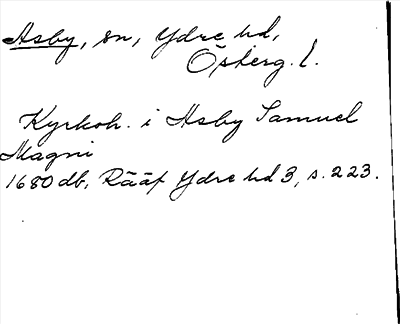 Asby, sn, Ydre hd,
Österg. l.
Kyrkoh. i Asby Samuel
Magni
1680 db, Rääf Ydre hd 3, s. 223.